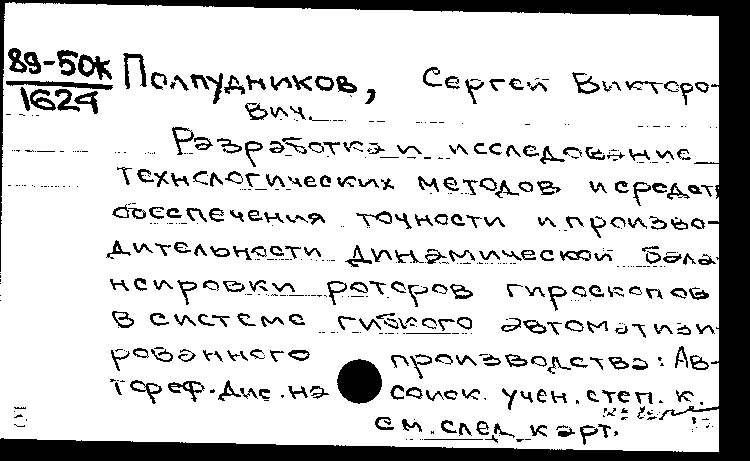 89-50К
1624
Полпудников, Сергей Викторо-
вич.
Разработка и исследование
технологических методов и средств
обеспечения точности и произво-
дительности динамической бала
нсировки роторов гироскопов
в системе гибкого автоматизи
рованного производства: Ав-
тореф. дис. на соиск. учен. степ. к.
см. след. карт.